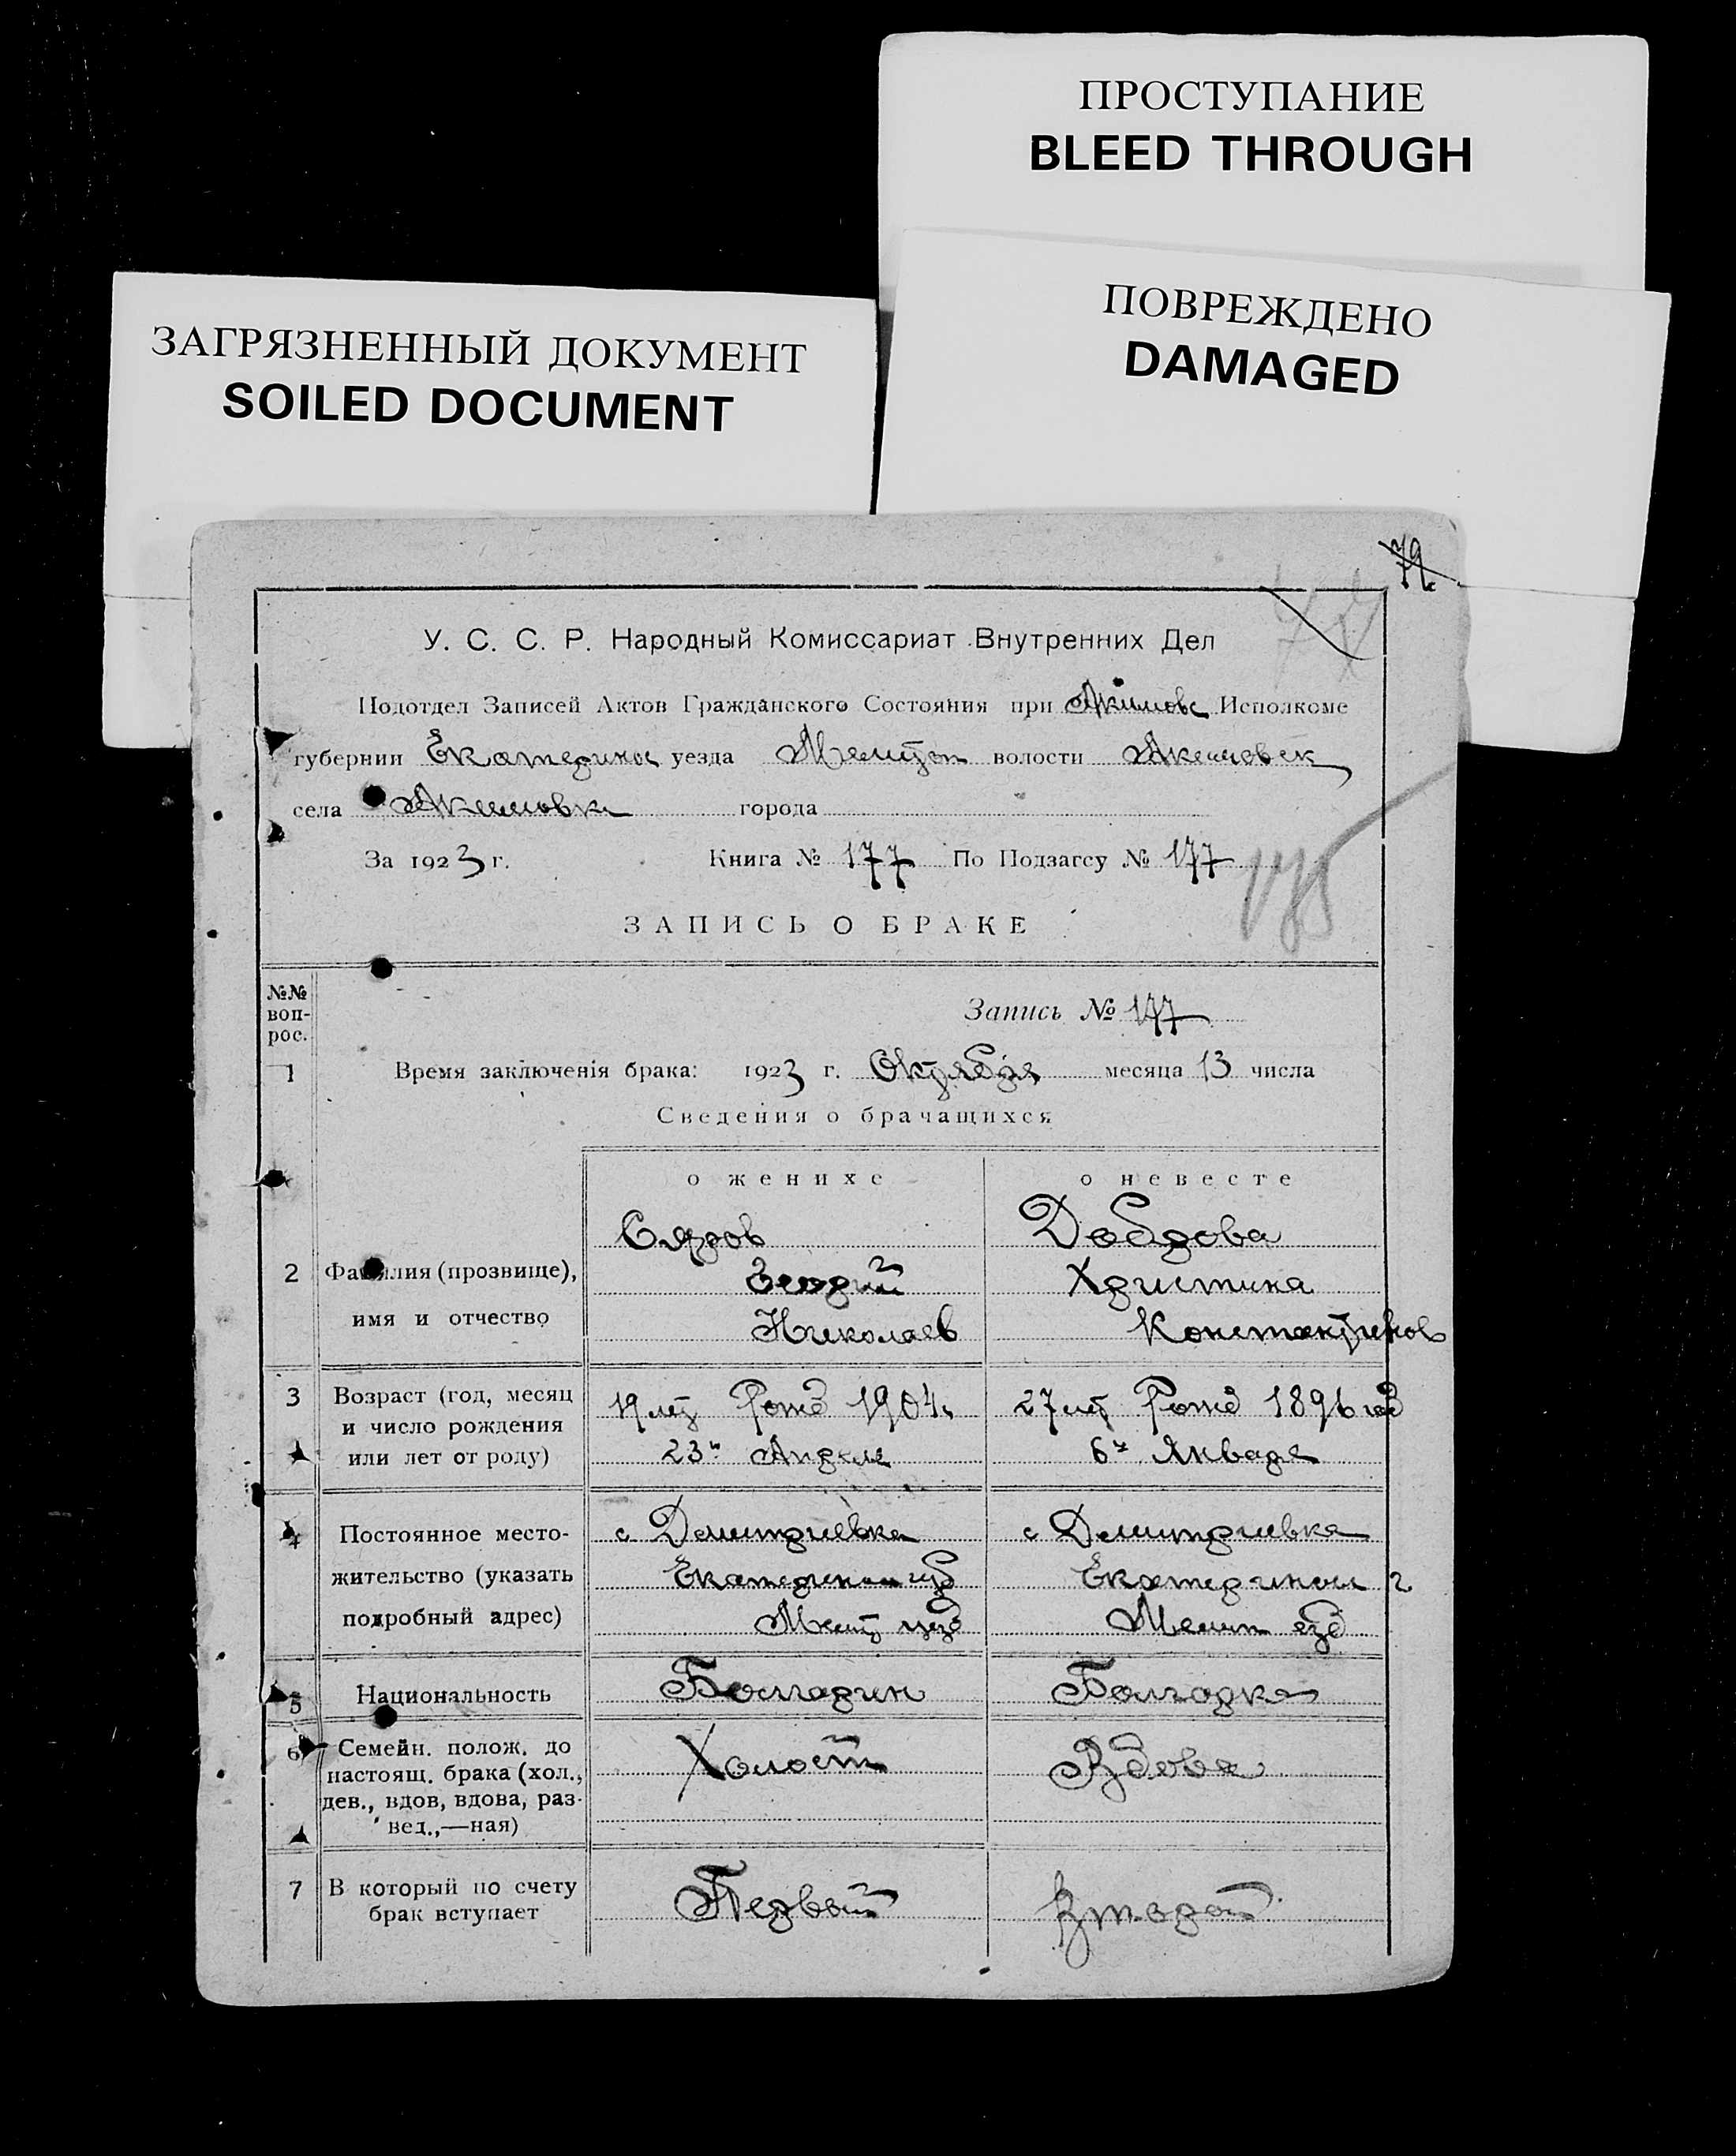 ПРОСТУПАНИЕ
BLEED THROUGH
ПОВРЕЖДЕНО
DAMAGED
ЗАГРЯЗНЕННЫЙ ДОКУМЕНТ
SOILED DOCUMENT
79
У. С. С. Р. Народный Комиссариат Внутренних Дел
Подотдел Записей Актов Гражданского Состояния при Акимовс Исполкоме
губернии Екатеринос уезда Мелитоп волости Акимовск
села Акимовки города
За 1923 г. Книга № 177 По Подзагсу № 177
ЗАПИСЬ О БРАКЕ
№№ воп-рос.
Запись № 177
1 Время заключенiя брака: 1923 г. Октября месяца 13 числа
Сведения о брачащихся
о женихе о невесте
Доброва
2 Фамилия (прозвище), Христина
имя и отчество Николаев Константинов
3 Возраст (год, месяц 19 лет Рожд 1904 г 27 лет Рожд 1896 год
и число рождения
или лет от роду) 23го Апреля 6го Января
4 Постоянное место- с Дмитриевка с Дмитриевка
жительство (указать Екатеринос губ Екатеринос г
подробный адрес) Мелит уезд Мелит езд
5 Национальность Болгарин Болгарка
6 Семейн. полож. до Холост Вдова
настоящ. брака (хол.,
дев., вдов, вдова, раз-
вед.,—ная)
7 В который по счету Первый Второй
брак вступает